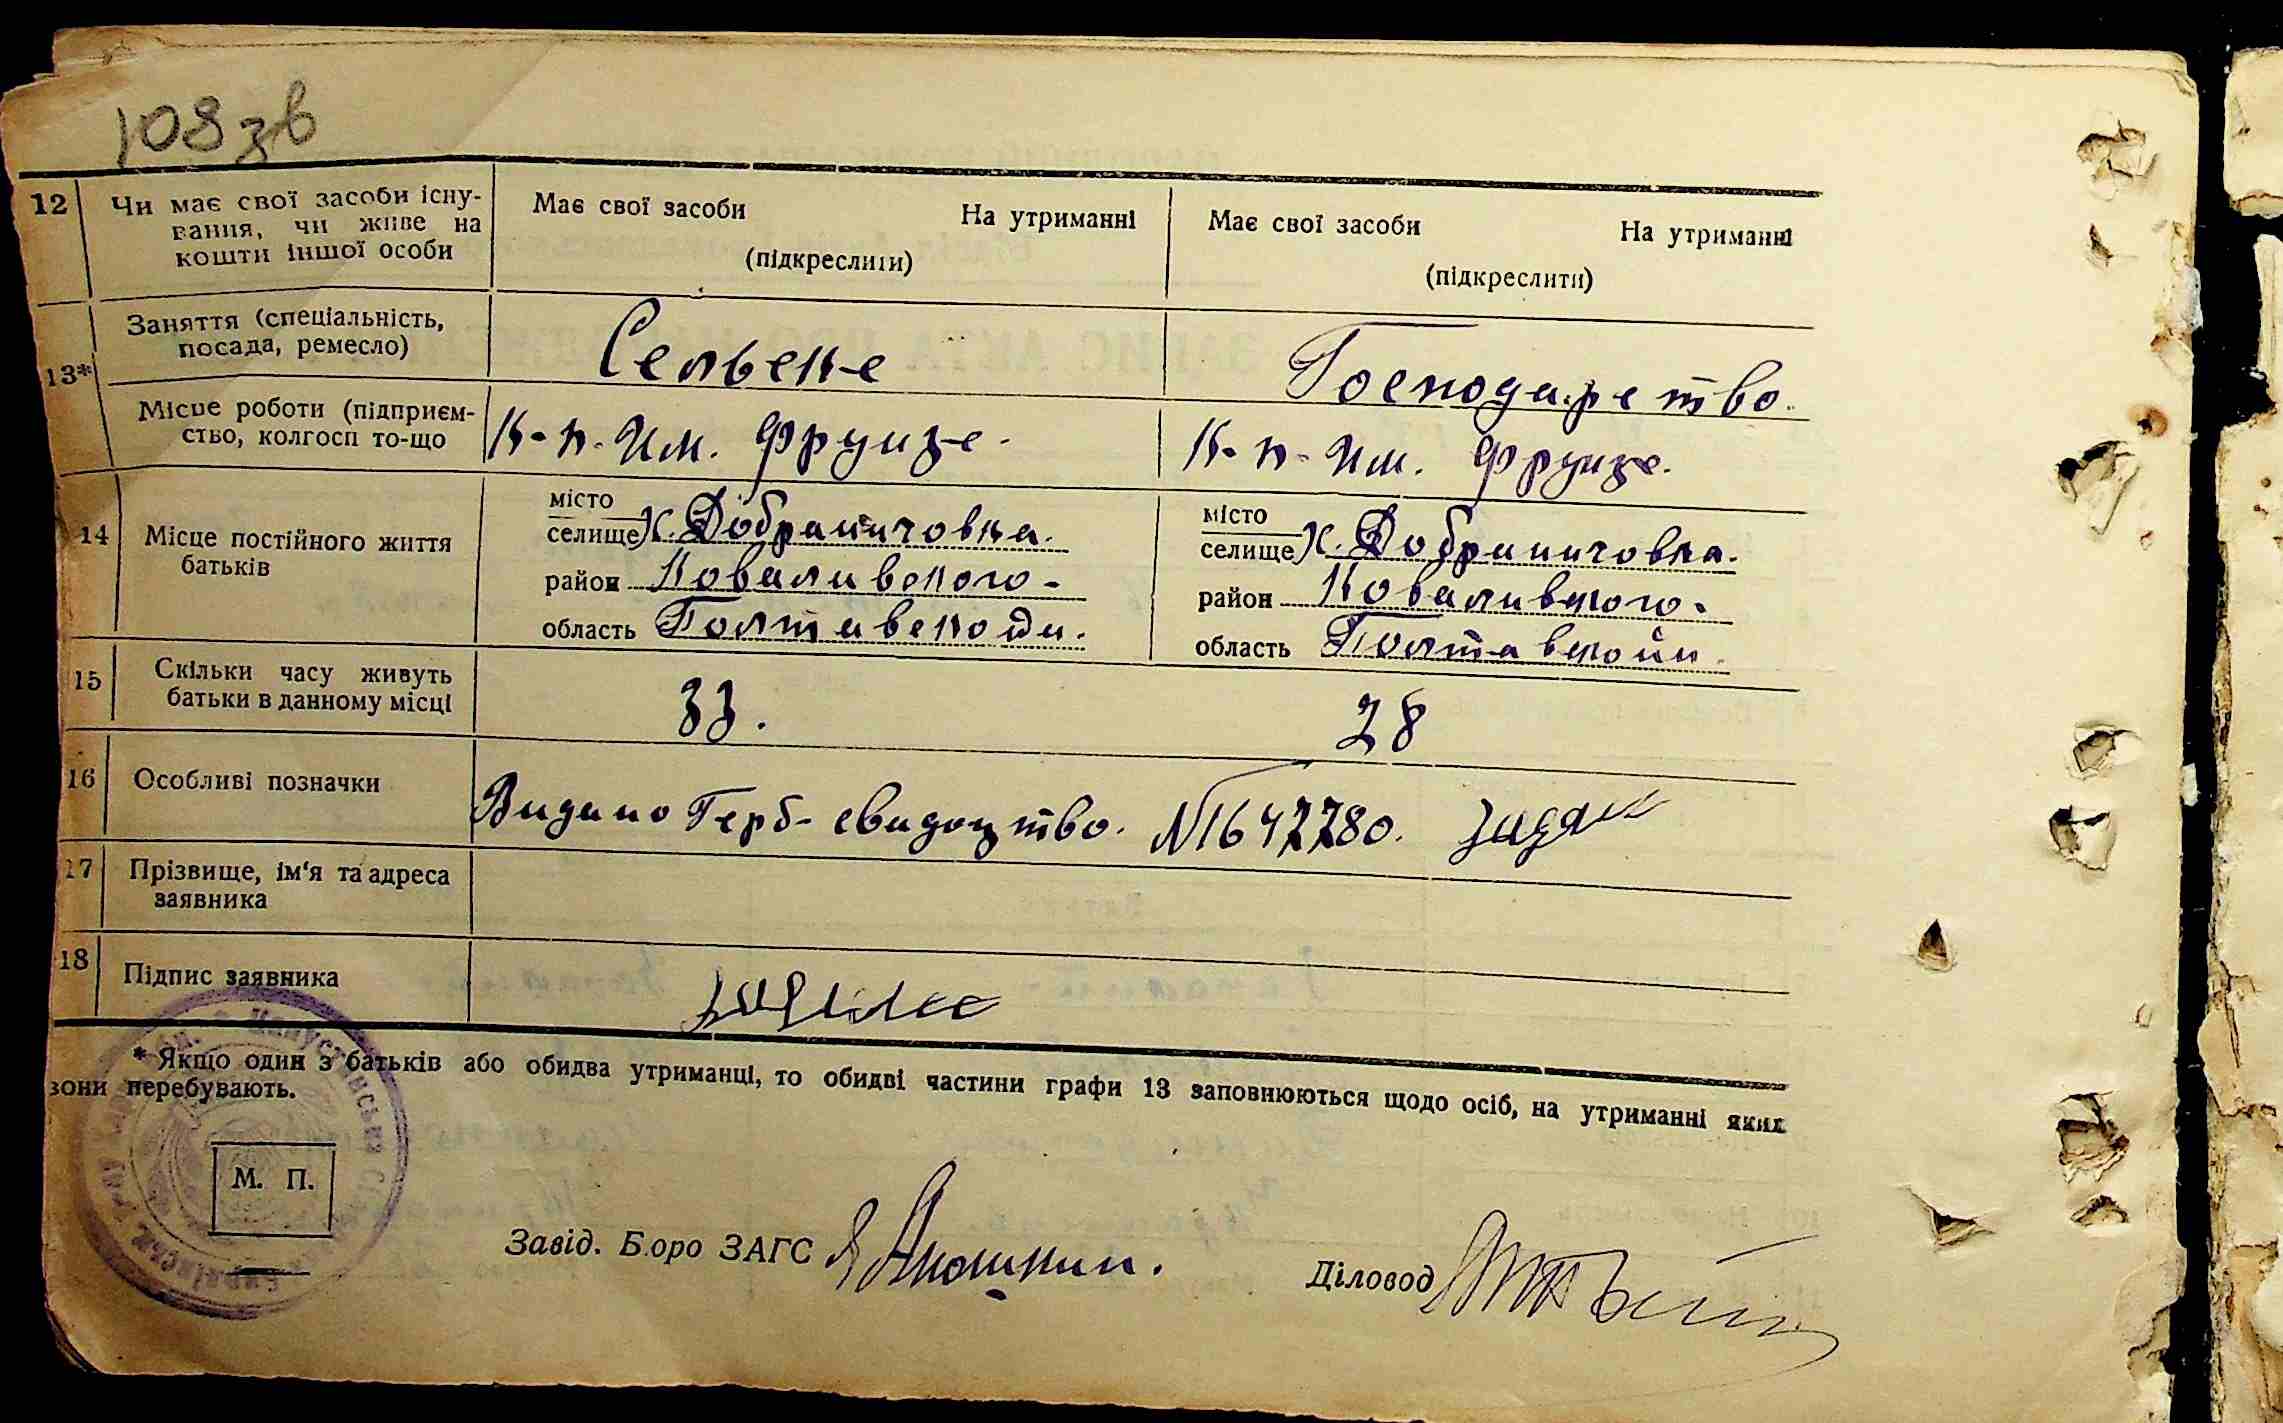 108 зв
12 Чи має свої засоби існу- Має свої засоби На утриманні Має свої засоби На утриманні
вання, чи живе на
кошти іншої особи (підкреслити) (підкреслити)
13* Заняття (спеціальність, Сельске Господарство.
посада, ремесло)
Місце роботи (підприєм- К-п. Им. Фрунзе. К-п. Им. Фрунзе.
ство, колгосп то-що
14 Місце постійного життя місто місто
батьків селище х. Добраничовка. селище х. Добраничовка.
район Коваливского. район Коваливского.
область Полтавскойи. область Полтавскойи.
15 Скільки часу живуть 33. 28
батьки в данному місці
16 Особливі позначки Видано Герб- свидоцтво. №1647780.
17 Прізвище, ім'я та адреса
заявника
18 Підпис заявника
* Якщо один з батьків або обидва утриманці, то обидві частини графи 13 заповнюються щодо осіб, на утриманні яких
вони перебувають.
М. П.
Завід. Бюро ЗАГС Діловод